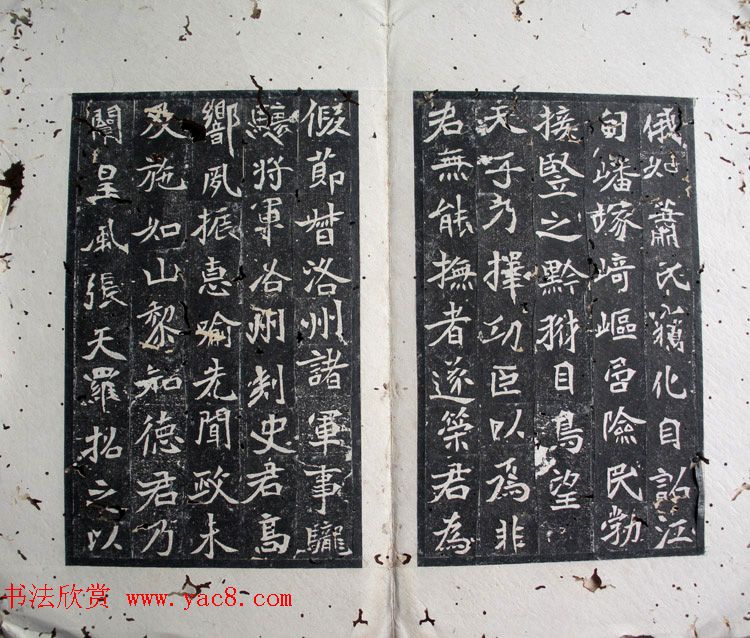 俄如蕭氏竊化自江
甸嶓塚崎嶇險民勃
接豎之黔豺目鳥望
天子乃擇功臣以為非
君無能撫者遂策君為
假節督洛州諸軍事驪
驤將軍洛州刾史君高
響夙振惠喻先聞政未
及施如山黎知德君乃
闡皇風張天羅招之以
书法欣赏 www.yac8.com